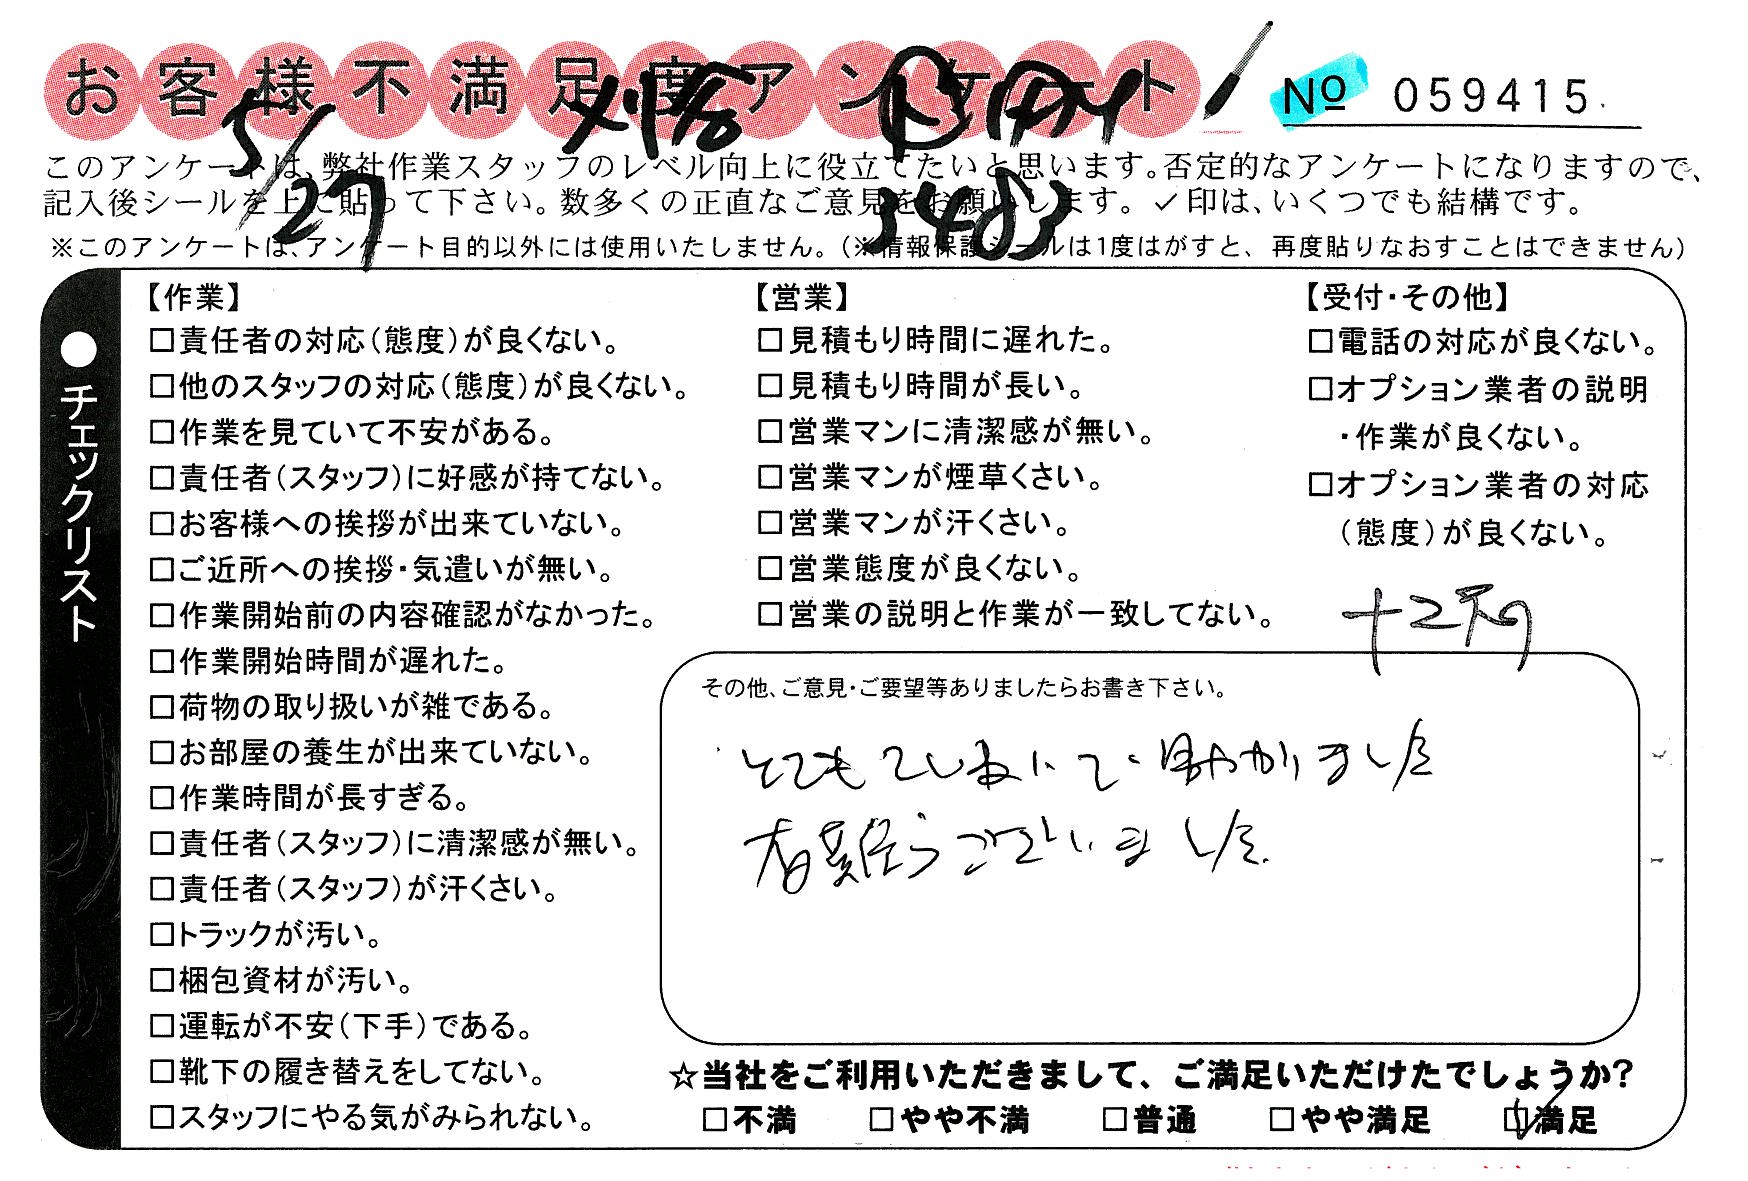 お客様不満足度アンケート
№ 059415
5/27
3483
このアンケートは、弊社作業スタッフのレベル向上に役立てたいと思います。否定的なアンケートになりますので、
記入後シールを上に貼って下さい。数多くの正直なご意見をお願いします。✓印は、いくつでも結構です。
※このアンケートは、アンケート目的以外には使用いたしません。（※情報保護シールは1度はがすと、再度貼りなおすことはできません）
●チェックリスト
【作業】
□責任者の対応（態度）が良くない。
□他のスタッフの対応（態度）が良くない。
□作業を見ていて不安がある。
□責任者（スタッフ）に好感が持てない。
□お客様への挨拶が出来ていない。
□ご近所への挨拶・気遣いが無い。
□作業開始前の内容確認がなかった。
□作業開始時間が遅れた。
□荷物の取り扱いが雑である。
□お部屋の養生が出来ていない。
□作業時間が長すぎる。
□責任者（スタッフ）に清潔感が無い。
□責任者（スタッフ）が汗くさい。
□トラックが汚い。
□梱包資材が汚い。
□運転が不安（下手）である。
□靴下の履き替えをしてない。
□スタッフにやる気がみられない。
【営業】
□見積もり時間に遅れた。
□見積もり時間が長い。
□営業マンに清潔感が無い。
□営業マンが煙草くさい。
□営業マンが汗くさい。
□営業態度が良くない。
□営業の説明と作業が一致してない。
【受付・その他】
□電話の対応が良くない。
□オプション業者の説明
・作業が良くない。
□オプション業者の対応
（態度）が良くない。
その他、ご意見・ご要望等ありましたらお書き下さい。
とてもていねいで、助かりました
有難うございました。
☆当社をご利用いただきまして、ご満足いただけたでしょうか?
□不満 □やや不満 □普通 □やや満足 ☑満足